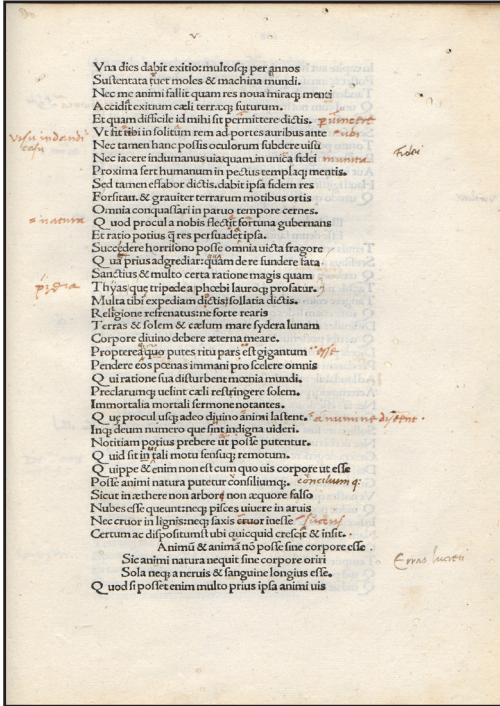 Vna dies dabit exitio: multosq; per annos
Sustentata ruet moles & machina mundi.
Nec me animi fallit quam res noua miraq; menti
Accidit exitum cæli terræq; futurum.
Et quam difficile id mihi sit permittere dictis. puincere
Vt fit tibi in solitum rem ad portes auribus ante ubi
Nec tamen hanc possis oculorum subdere uisu
Nec iacere indumanus uia quam in unica fidei munita
Proxima fert humanum in pectus templaq; mentis.
Sed tamen effabor dictis. dabit ipsa fidem res
Forsitan. & grauiter terrarum motibus ortis
Omnia conquassari in paruo tempore cernes.
Q uod procul a nobis flectit fortuna gubernans
Et ratio potius q̄ res persuadet ipsa.
Succedere horrisono posse omnia uicta fragore
Q ua prius adgrediar quam de re fundere fata
Sanctius & multo certa ratione magis quam
Thyas que tripode a phœbi lauroq; profatur.
Multa tibi expediam dictis sollatia dictis.
Religione refrenatus: ne forte rearis
Terras & solem & cælum mare sydera lunam
Corpore diuino debere æterna meare.
Propterea quo putes ritu pars est gigantum esse
Pendere eos pœnas immani pro scelere omnis
Q ui ratione sua disturbent mœnia mundi.
Preclarumq; uelint cæli restringere solem.
Immortalia mortali sermone notantes.
Q uę procul usq; adeo diuino animi lastent. a numine distent.
Inq; deum numero que sint indigna uideri.
Notitiam potius prebere ut posse putentur.
Q uid sit in tali motu sensuq; remotum.
Q uippe & enim non est cum quo uis corpore ut esse
Posse animi natura putetur consiliumq;. conciliumq;
Sicut in æthere non arbor; non æquore falso
Nubes esse queunt: neq; pisces uiuere in aruis
Nec cruor in lignis: neq; saxis cruor inesse
Certum ac dispositumst ubi quicquid crescit & insit.
Animū & animā nō posse sine corpore esse.
Sic animi natura nequit sine corpore oriri
Sola neq; a neruis & sanguine longius esse.
Q uod si posset enim multo prius ipsa animi uis
Fidei
natura
Erras lucreti